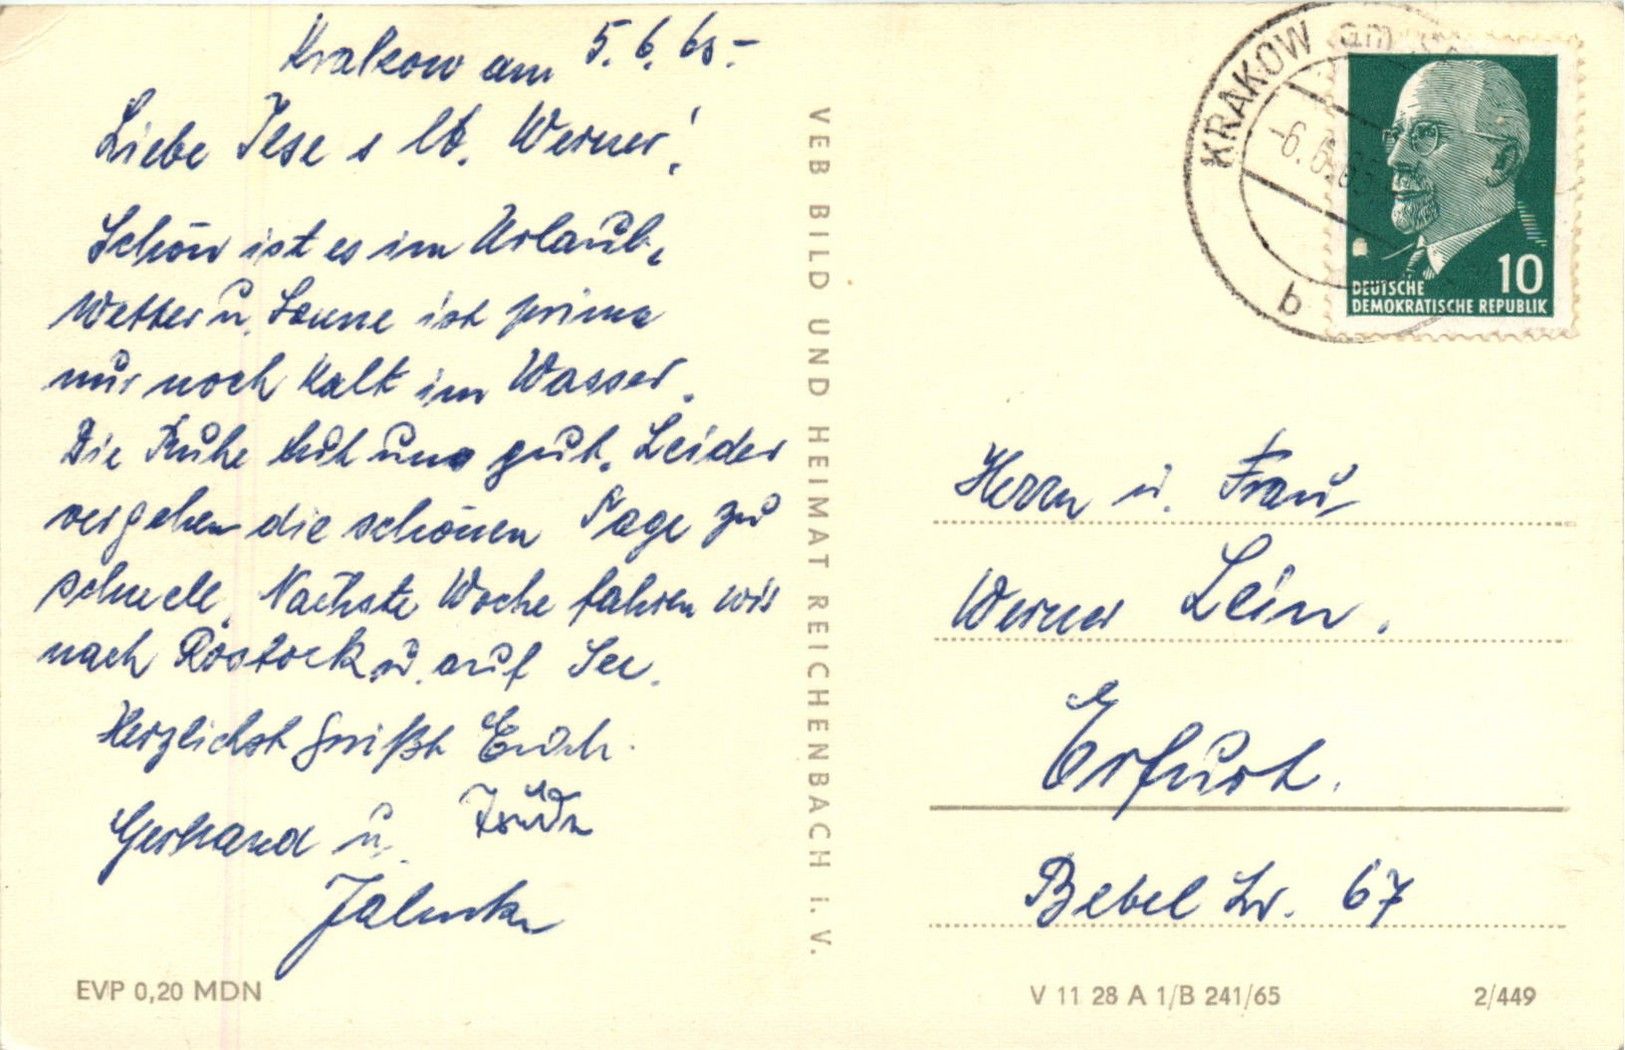 Krakow am 5.6.65.-
Liebe Ilse u lb. Werner!
Schön ist es im Urlaub.
Wetter u. Sonne ist prima
nur noch kalt im Wasser.
Die Ruhe tut uns gut. Leider
vergehen die schönen Tage zu
schnell. Nächste Woche fahren wir
nach Rostock u. auf See.
Herzlichst grüßt Erich.
Gerhard u.
VEB BILD UND HEIMAT REICHENBACH i. V.
EVP 0,20 MDN
KRAKOW am
-6.6.65
b
10
DEUTSCHE
DEMOKRATISCHE REPUBLIK
Herrn u. Frau
Werner Lein.
Erfurt.
Bebel Str. 67
V 11 28 A 1/B 241/65
2/449